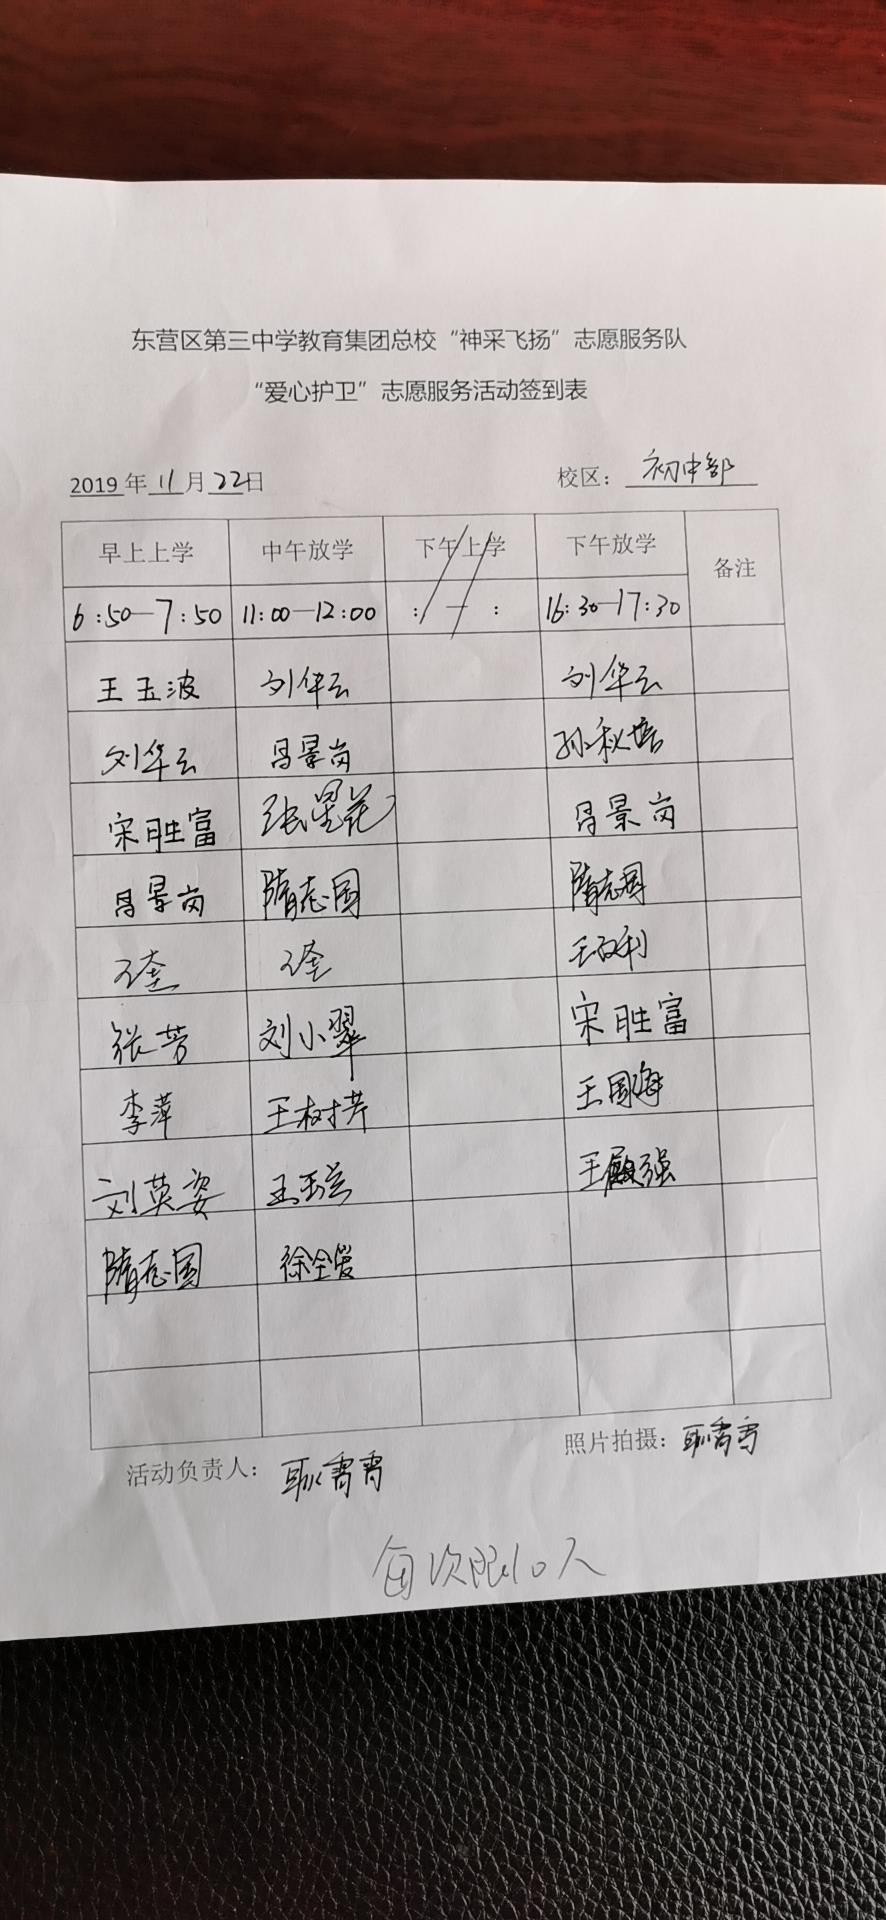 东营区第三中学教育集团总校“神采飞扬”志愿服务队
“爱心护卫”志愿服务活动签到表
2019年11月22日 校区：初中部
早上上学 中午放学 下午上学 下午放学 备注
6:50—7:50 11:00—12:00 : — : 16:30—17:30
王玉波 刘华云 刘华云
刘华云 吕景岗 孙秋培
宋胜富 张星花 吕景岗
吕景岗 隋志国 隋志国
王百利
张芳 刘小翠 宋胜富
李萍 王树芹 王国海
刘英姿 王玉兰 王殿强
隋志国 徐全爱
活动负责人：耿霄霄 照片拍摄：耿霄霄
每次限10人